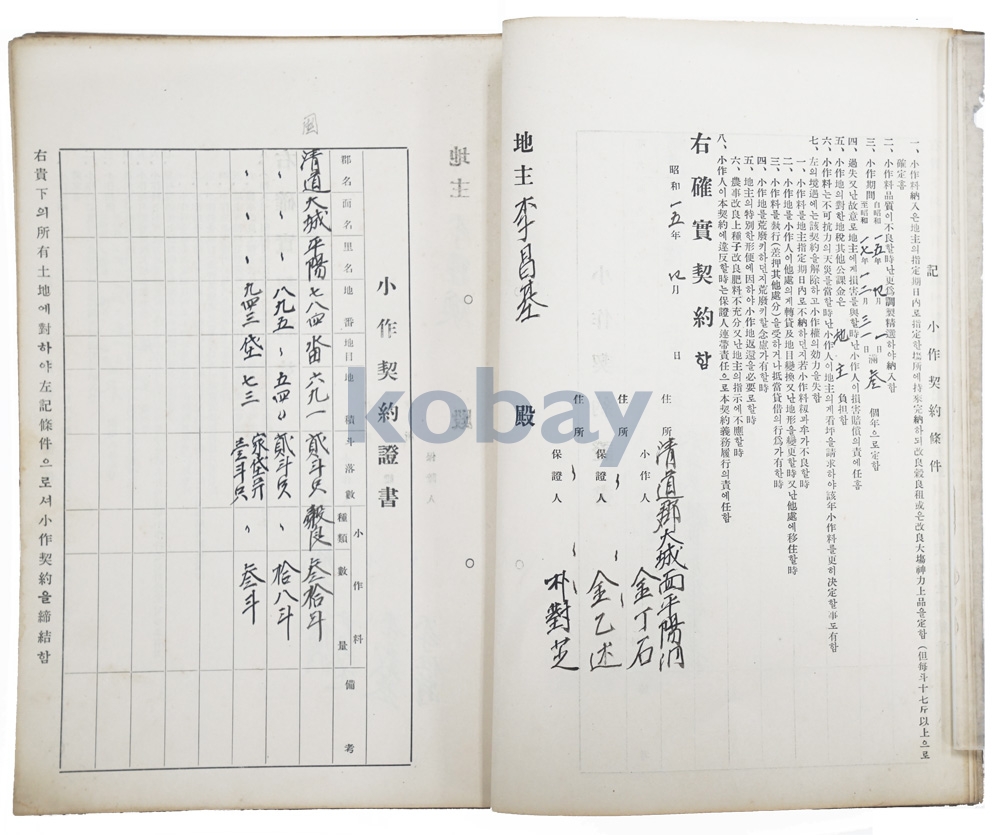 記 小作契約條件
一、小作料納入은地主의指定期日內로指定한場所에持來完納하되改良穀良租或은改良大場神力上品을定함(但每斗十七斤以上으로
確定홈
二、小作料品質이不良할時난更爲調製精選하야納入함
三、小作期間 自昭和一五年四月一日 至昭和一七年一二月三一日 滿叁個年으로定함
四、過失又난故意로地主에게損害를與할時난小作人이損害賠償의責에任홈
五、小作地의對한地稅其他公課金은地主負担함
六、小作料는不可抗力의天災를當할時난小作人이地主의게看坪을請求하야該年小作料를更히決定할事도有함
七、左의境遇에는該契約을解除하고小作權의効力을失함
一、小作料를地主指定期日內로不納하던지若小作料籾과牟가不良할時
二、小作地를小作人이他處의게轉貸及地目變換又난地形을變更할時又난他處에移住할時
三、小作料를執行(差押其他處分)을受하거나抵當貸借의行爲가有한時
四、小作地를荒廢키하던지荒廢키할念慮가有할時
五、地主의特別한形便에因하야小作地返還을必要로할時
六、農事改良上種子改良肥料不充分又난地主의指示에不應할時
八、小作人이本契約에違反할時는保證人連帶責任으로本契約義務履行의責에任함
右確實契約함
昭和一五年四月 日
住所 淸道郡大城面平陽洞
小作人 金丁石
住所 〃 〃
保證人 金乙述
住所 〃 〃
保證人 朴對芝
地主李昌基 殿
地主
小作契約證書
郡名 面名 里名 地番 地目 地積 斗落數 小作料 種類 數量 備考
淸道 大城 平陽 七八四 畓 六九一 貳斗只 穀良 叁拾斗
〃 〃 〃 八九五 〃 五四〃 貳斗只 〃 拾八斗
〃 〃 〃 九四三 垈 七三 家垈幷壹斗只 〃 叁斗
右貴下의所有土地에對하야左記條件으로셔小作契約을締結함
kobay